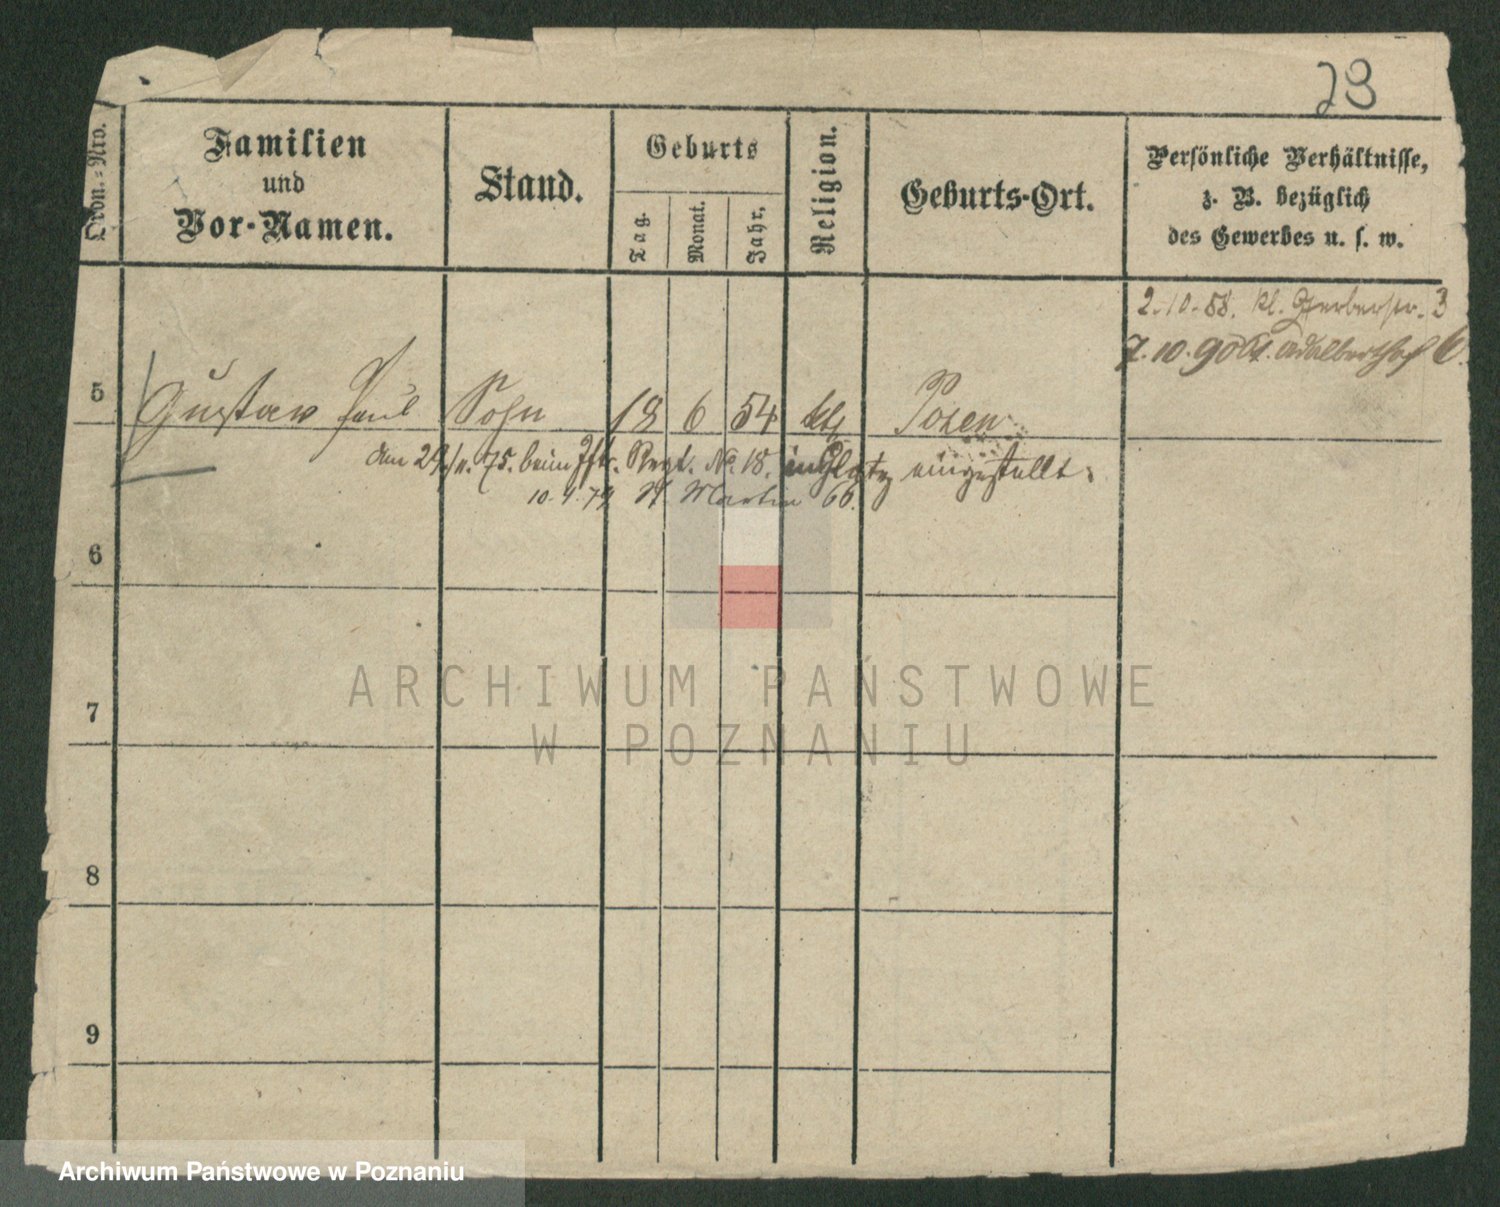 23
Ordn.-Nro.
Familien
und
Vor-Namen.
Stand.
Geburts
Tag.
Monat.
Jahr.
Religion.
Geburts-Ort.
Persönliche Verhältnisse,
z. B. bezüglich
des Gewerbes u. s. w.
2.10.88. Kl. Gerberstr. 3
7.10.90 Adalberthof 6.
5 Gustav Paul Sohn 18 6 54 kth Posen
den 29/11. 75. beim Inftr. Regt. No. 18. in Glatz eingestellt.
10.4.79 St. Martin 66.
6
7
8
9
ARCHIWUM PAŃSTWOWE
W POZNANIU
Archiwum Państwowe w Poznaniu